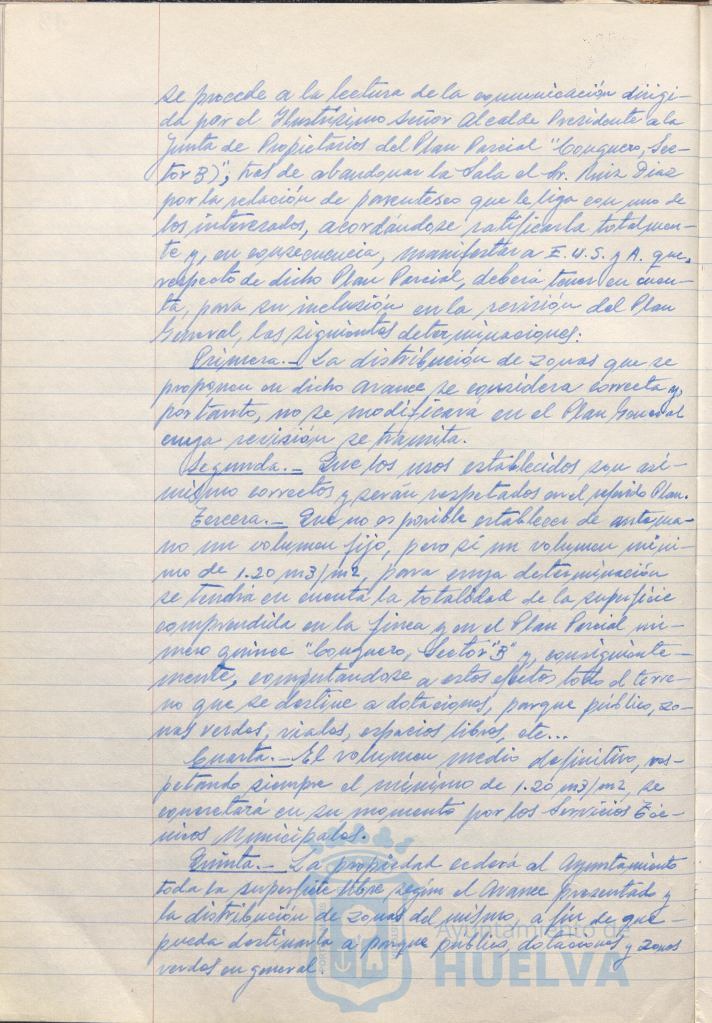 se procede a la lectura de la comunicación dirigi-
da por el Ilustrísimo Señor Alcalde Presidente a la
Junta de Propietarios del Plan Parcial "Conquero, Sec-
tor B)"; tras de abandonar la Sala el Sr. Ruiz Diaz
por la relación de parentesco que le liga con uno de
los interesados, acordándose ratificarla totalmen-
te y, en consecuencia, manifestar a E.U.S. y A. que,
respecto de dicho Plan Parcial, deberá tener en cuen-
ta, para su inclusión en la revisión del Plan
General, las siguientes determinaciones:
Primera.- La distribución de zonas que se
proponen en dicho avance se considera correcta y,
por tanto, no se modificara en el Plan General
cuya revisión se tramita.
Segunda.- Que los usos establecidos son asi-
mismo correctos y serán respetados en el referido Plan.
Tercera.- Que no es posible establecer de antema-
no un volumen fijo, pero sí un volumen míni-
mo de 1.20 m3/m2, para cuya determinación
se tendrá en cuenta la totalidad de la superficie
comprendida en la finca y en el Plan Parcial nú-
mero quince "Conquero, Sector "B" y, consiguiente-
mente, computandose a estos efectos todo el terre-
no que se destine a dotaciones, parque público, zo-
nas verdes, viales, espacios libres, etc...
Cuarta.- El volumen medio definitivo, res-
petando siempre el mínimo de 1.20 m3/m2, se
concretará en su momento por los Servicios Téc-
nicos Municipales.
Quinta.- La propiedad cederá al Ayuntamiento
toda la superficie libre según el Avance presentado y
la distribución de zonas del mismo, a fin de que
pueda destinarla a parque público, dotaciones y zonas
verdes en general.
Ayuntamiento de
HUELVA